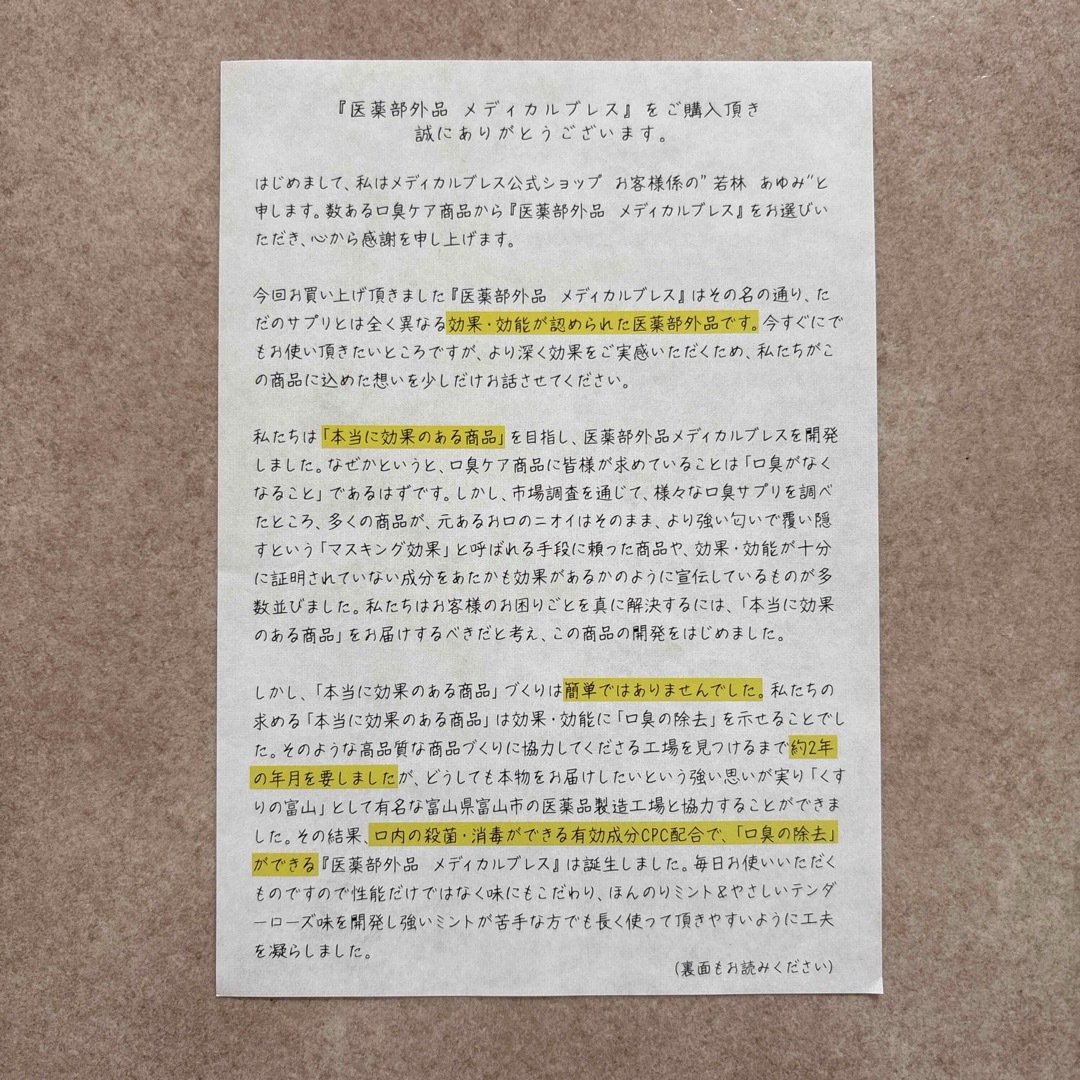 『医薬部外品 メディカルブレス』をご購入頂き
誠にありがとうございます。
はじめまして、私はメディカルブレス公式ショップ お客様係の"若林 あゆみ"と
申します。数ある口臭ケア商品から『医薬部外品 メディカルブレス』をお選びい
ただき、心から感謝を申し上げます。
今回お買い上げ頂きました『医薬部外品 メディカルブレス』はその名の通り、た
だのサプリとは全く異なる効果・効能が認められた医薬部外品です。今すぐにで
もお使い頂きたいところですが、より深く効果をご実感いただくため、私たちがこ
の商品に込めた想いを少しだけお話させてください。
私たちは「本当に効果のある商品」を目指し、医薬部外品メディカルブレスを開発
しました。なぜかというと、口臭ケア商品に皆様が求めていることは「口臭がなく
なること」であるはずです。しかし、市場調査を通じて、様々な口臭サプリを調べ
たところ、多くの商品が、元あるお口のニオイはそのまま、より強い匂いで覆い隠
すという「マスキング効果」と呼ばれる手段に頼った商品や、効果・効能が十分
に証明されていない成分をあたかも効果があるかのように宣伝しているものが多
数並びました。私たちはお客様のお困りごとを真に解決するには、「本当に効果
のある商品」をお届けするべきだと考え、この商品の開発をはじめました。
しかし、「本当に効果のある商品」づくりは簡単ではありませんでした。私たちの
求める「本当に効果のある商品」は効果・効能に「口臭の除去」を示せることでし
た。そのような高品質な商品づくりに協力してくださる工場を見つけるまで約2年
の年月を要しましたが、どうしても本物をお届けしたいという強い思いが実り「くす
りの富山」として有名な富山県富山市の医薬品製造工場と協力することができま
した。その結果、口内の殺菌・消毒ができる有効成分CPC配合で、「口臭の除去」
ができる『医薬部外品 メディカルブレス』は誕生しました。毎日お使いいただく
ものですので性能だけではなく味にもこだわり、ほんのりミント&やさしいテンダ
ーローズ味を開発し強いミントが苦手な方でも長く使って頂きやすいように工夫
を凝らしました。
(裏面もお読みください)